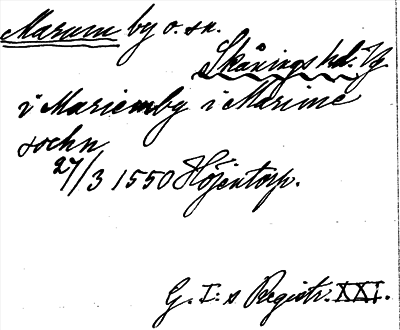 Marum by o. sn.
Skånings hd. Vg
i Mariemby i Marime
sochn
27/3 1550 Höjentorp.
G. I:s Registr. XXI.